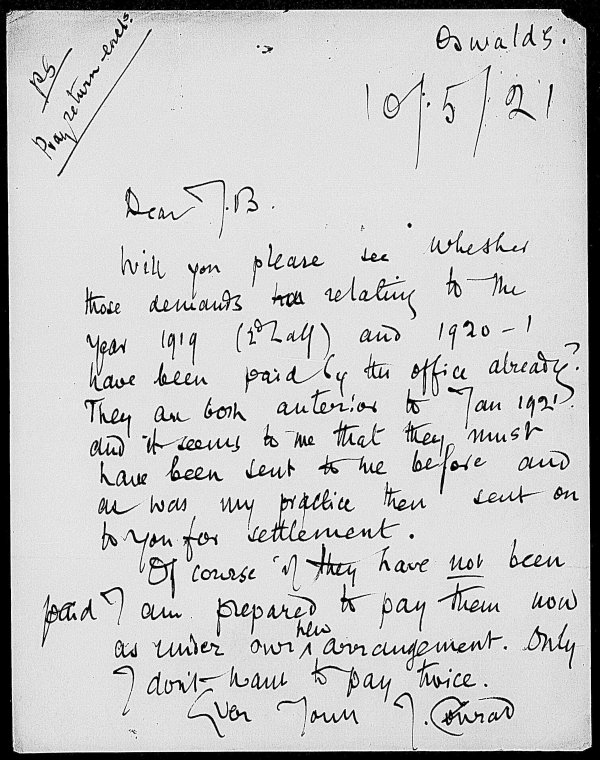 PS
Pray return encls.
Oswalds.
10/5/21
Dear J.B.
Will you please see whether
those demands relating to the
year 1919 (2d half) and 1920-1
have been paid by the office already?
They are both anterior to Jan 1921.
and it seems to me that they must
have been sent to me before and
as was my practice then sent on
to you for settlement.
Of course if they have not been
paid I am prepared to pay them now
as under our new arrangement. Only
I don't want to pay twice.
Ever Yours J. Conrad